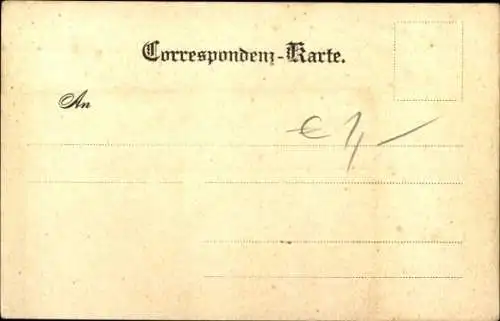 Correspondenz-Karte.
An
€ 4,—